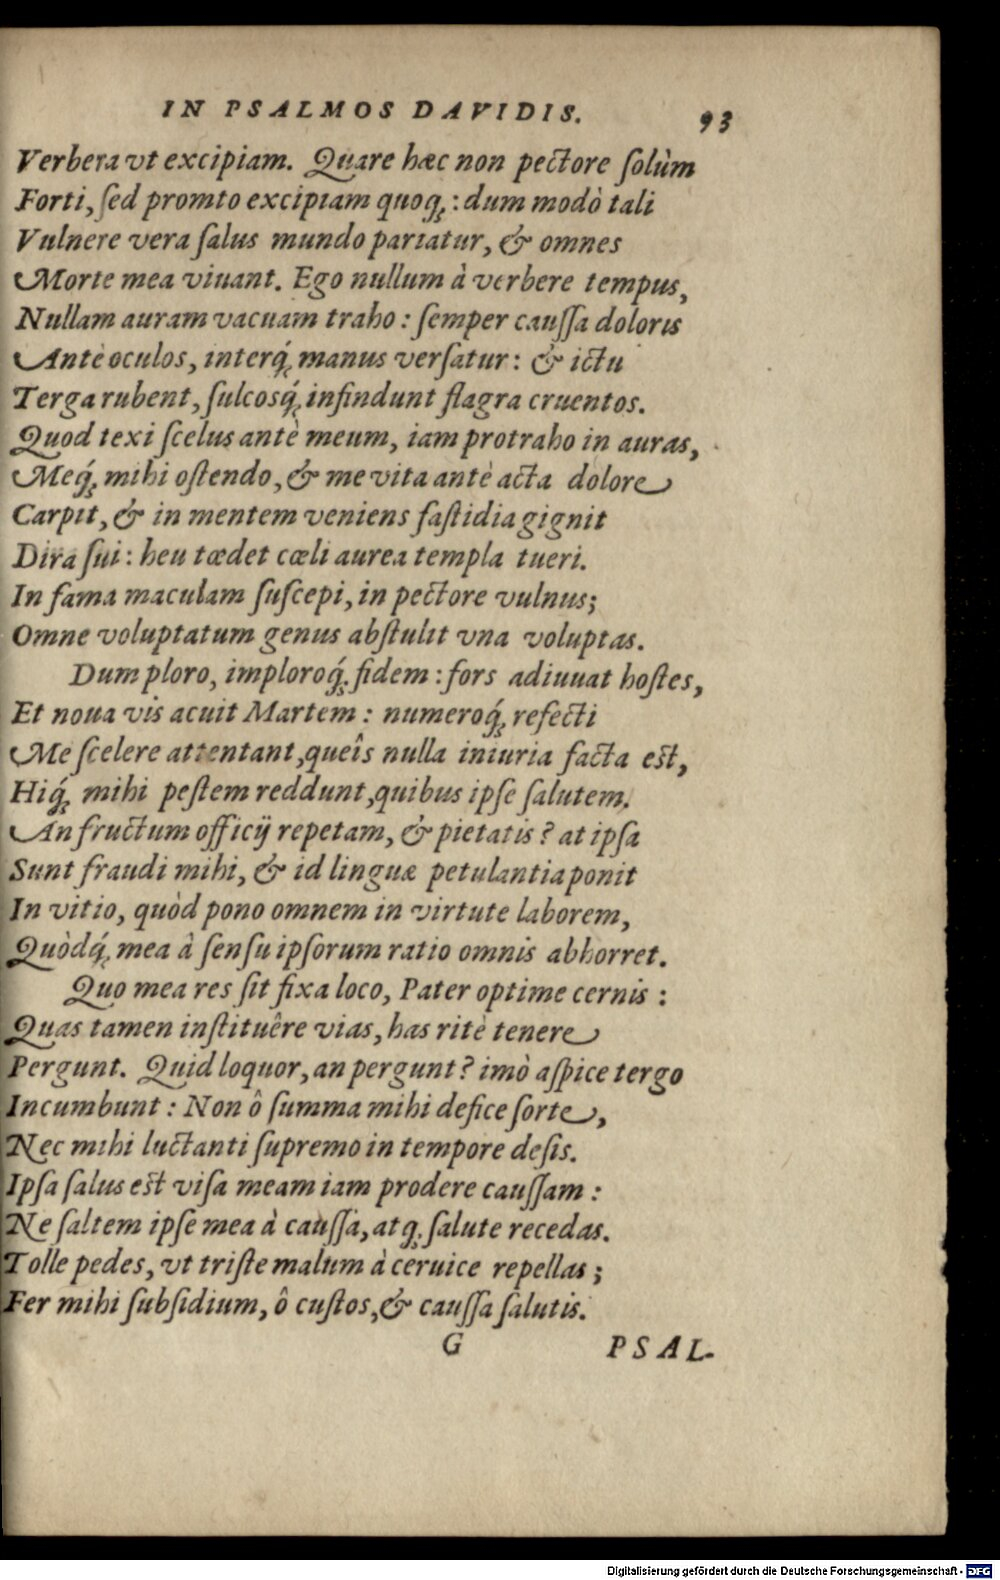 IN PSALMOS DAVIDIS. 93
Verbera vt excipiam. Quare hæc non pectore ſolùm
Forti, ſed promto excipiam quoq; : dum modò tali
Vulnere vera ſalus mundo pariatur, & omnes
Morte mea viuant. Ego nullum à verbere tempus,
Nullam auram vacuam traho : ſemper cauſſa doloris
Antè oculos, interq́; manus verſatur : & ictu
Terga rubent, ſulcosq́; infindunt flagra cruentos.
Quod texi ſcelus antè meum, iam protraho in auras,
Meq́; mihi oſtendo, & me vita antè acta dolore
Carpit, & in mentem veniens faſtidia gignit
Dira ſui : heu tædet cœli aurea templa tueri.
In fama maculam ſuſcepi, in pectore vulnus;
Omne voluptatum genus abſtulit vna voluptas.
Dum ploro, imploroq́; fidem : fors adiuuat hoſtes,
Et noua vis acuit Martem : numeroq́; refecti
Me ſcelere attentant, queîs nulla iniuria facta est,
Hiq́; mihi peſtem reddunt, quibus ipſe ſalutem.
An fructum officij repetam, & pietatis? at ipſa
Sunt fraudi mihi, & id linguæ petulantia ponit
In vitio, quòd pono omnem in virtute laborem,
Quòdq́; mea à ſenſu ipſorum ratio omnis abhorret.
Quo mea res ſit fixa loco, Pater optime cernis :
Quas tamen inſtituêre vias, has ritè tenere
Pergunt. Quid loquor, an pergunt? imò aſpice tergo
Incumbunt : Non ô ſumma mihi defice ſorte,
Nec mihi luctanti ſupremo in tempore deſis.
Ipſa ſalus est viſa meam iam prodere cauſſam :
Ne ſaltem ipſe mea à cauſſa, atq; ſalute recedas.
Tolle pedes, vt triſte malum à ceruice repellas ;
Fer mihi ſubſidium, ô cuſtos, & cauſſa ſalutis.
G PSAL-
Digitalisierung gefördert durch die Deutsche Forschungsgemeinschaft - DFG